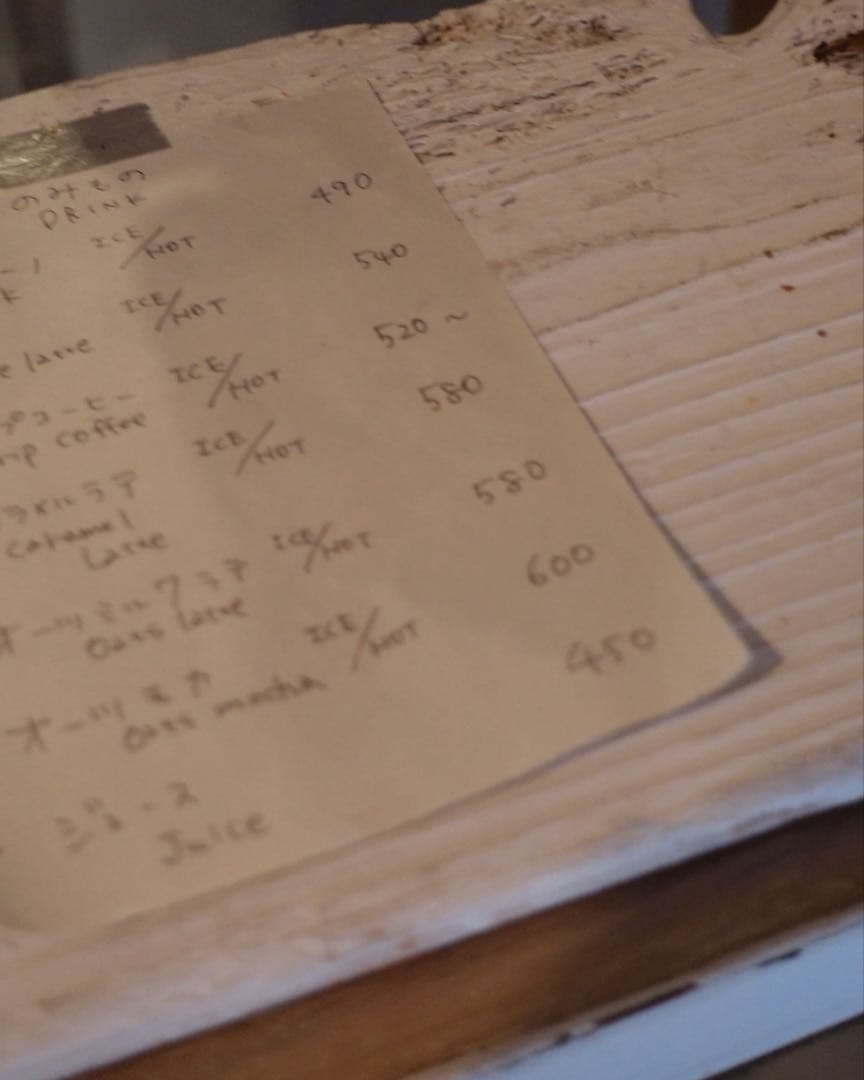 のみもの
DRINK
ICE/HOT 490
ICE/HOT 540
latte
ICE/HOT 520~
コーヒー
coffee
ICE/HOT 580
ラメルラテ
caramel
latte
オーツミルクラテ ICE/HOT 580
Oats latte
オーツモカ ICE/HOT 600
Oats mocha
ジュース 450
Juice